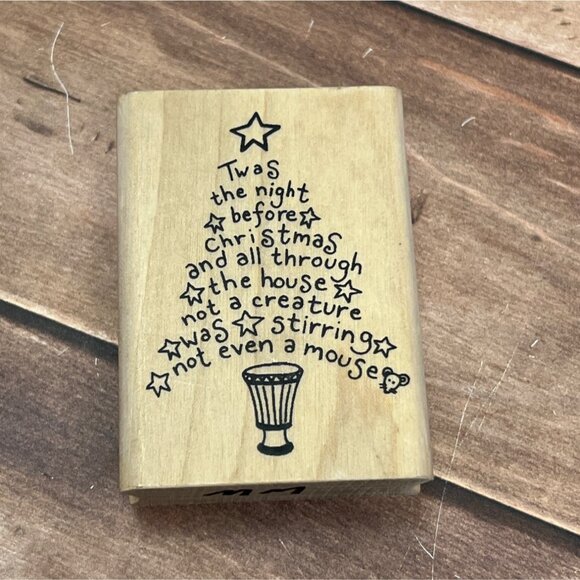 Twas
the night
before
christmas
and all through
the house
not a creature
was stirring
not even a mouse